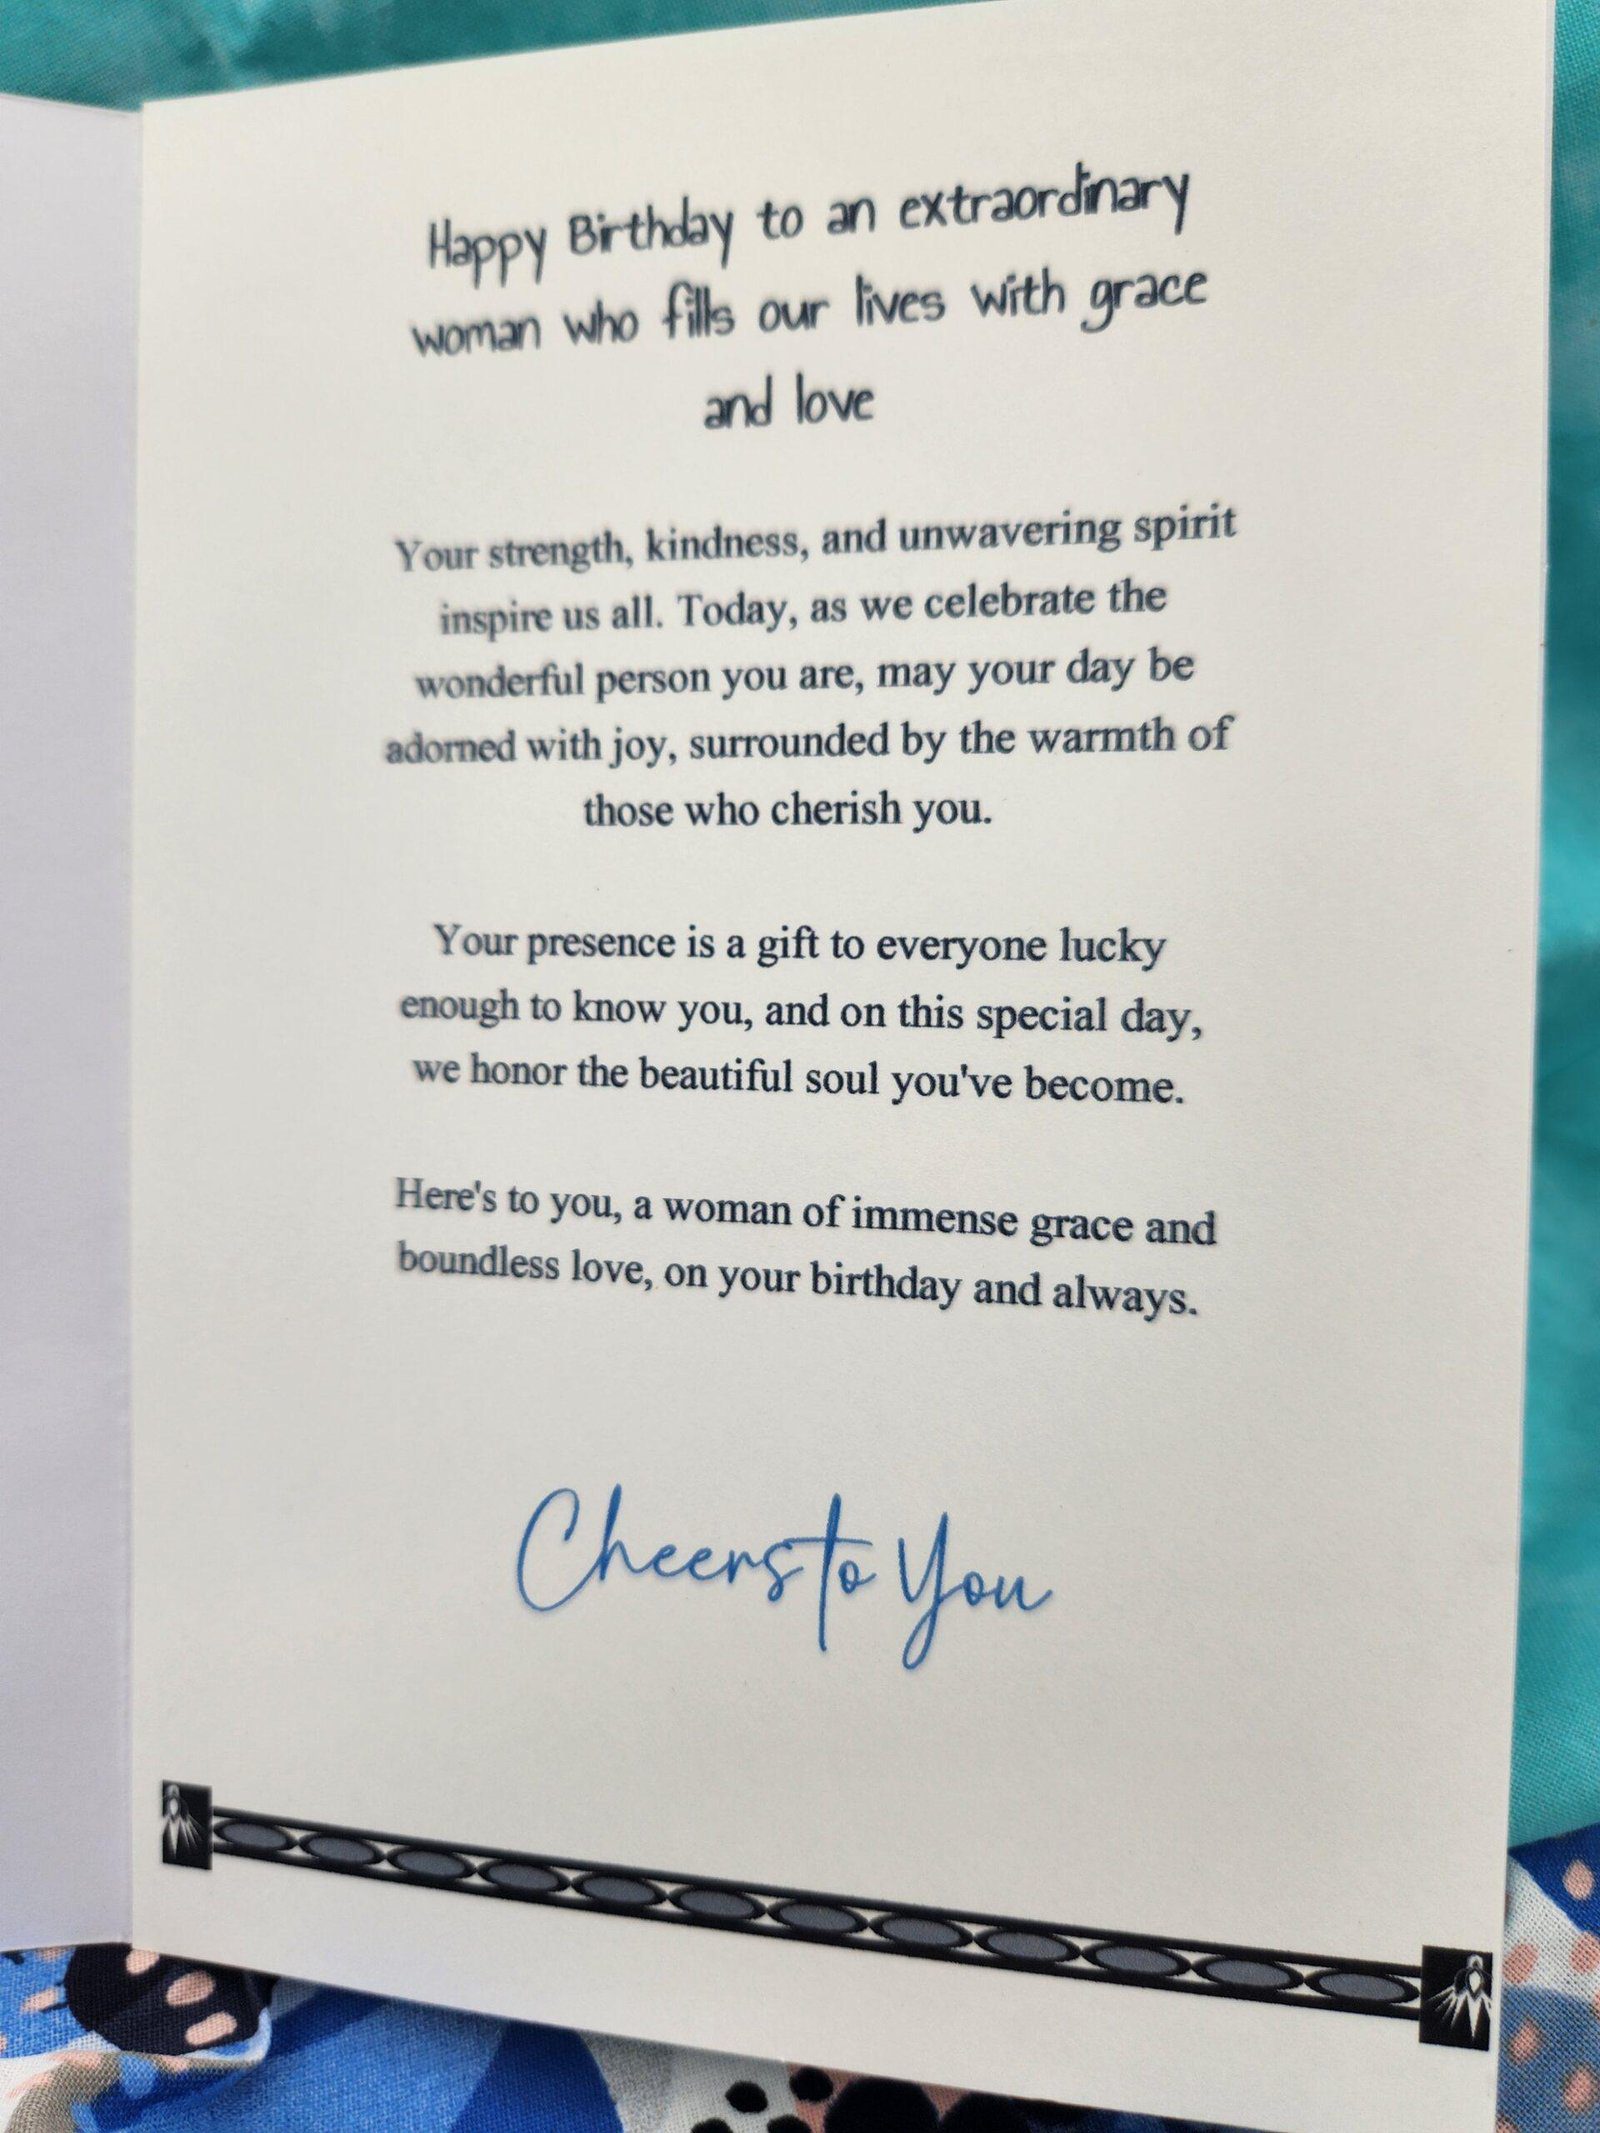 Happy Birthday to an extraordinary
woman who fills our lives with grace
and love
Your strength, kindness, and unwavering spirit
inspire us all. Today, as we celebrate the
wonderful person you are, may your day be
adorned with joy, surrounded by the warmth of
those who cherish you.
Your presence is a gift to everyone lucky
enough to know you, and on this special day,
we honor the beautiful soul you've become.
Here's to you, a woman of immense grace and
boundless love, on your birthday and always.
Cheers to You